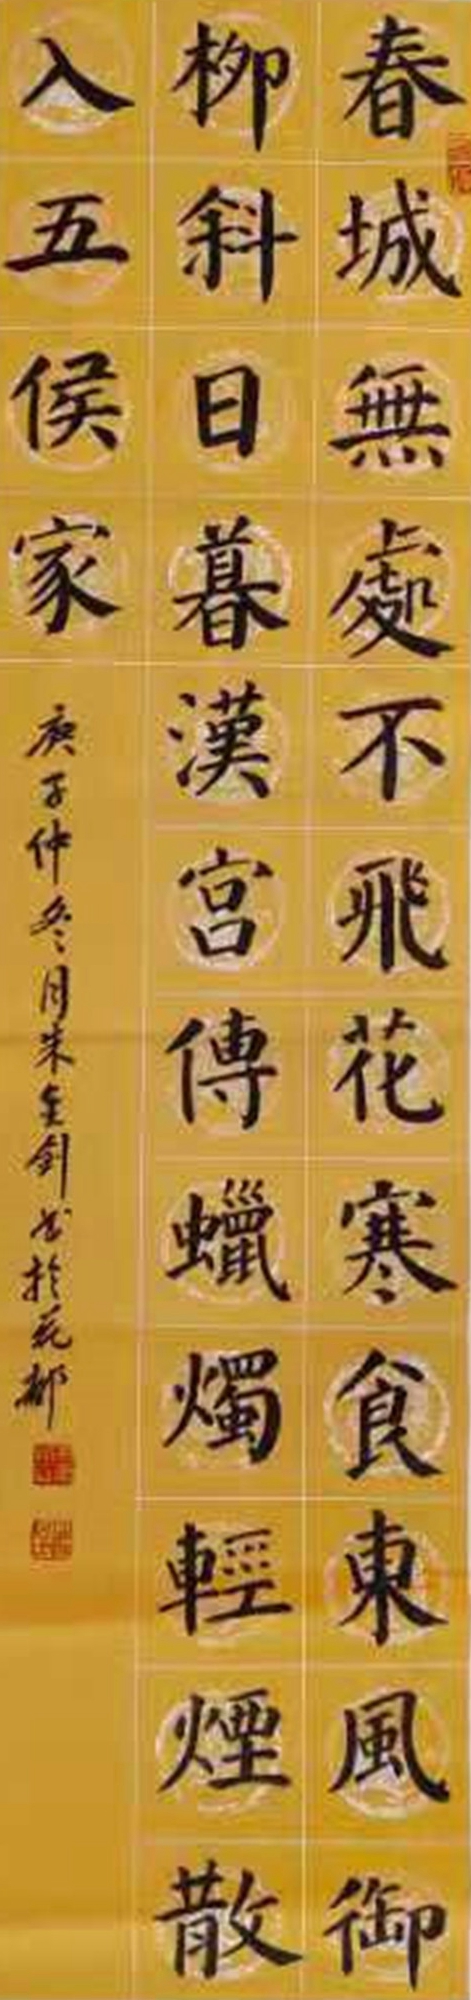 春城無處不飛花寒食東風御
柳斜日暮漢宮傳蠟燭輕煙散
入五侯家
庚子仲冬月朱金劍書於花都